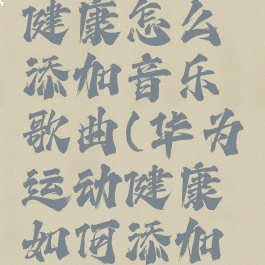 健康怎么
添加音乐
歌曲(华为
运动健康
如何添加